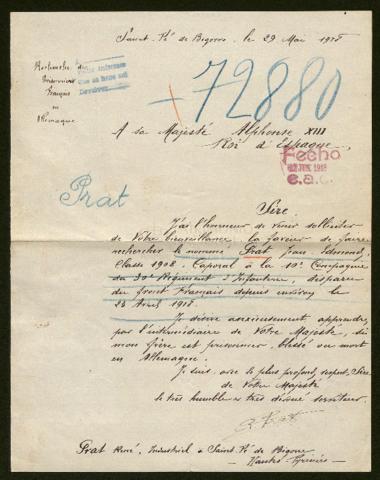 Saint-Pé de Bigorre, le 29 Mai 1918
Recherche des
Internés
Français
en
Allemagne
+72880
A sa Majesté Alphonse XIII
Roi d'Espagne,
Fecho
JUN. 1918
e.a.c.
Prat
Sire
J'ai l'honneur de venir solliciter
de Votre bienveillance la faveur de faire
rechercher le nommé Prat Jean Edmond,
Classe 1908. Caporal à la 10e Compagnie
du 30e Régiment d'Infanterie, disparu
du front Français depuis environ le
23 Avril 1918.
Je désire anxieusement apprendre,
par l'intermédiaire de Votre Majesté, si
mon frère est prisonnier, blessé ou mort
en Allemagne.
Je suis avec le plus profond respect, Sire
de Votre Majesté
le très humble et très dévoué serviteur.
R. Prat
Prat René, Industriel à Saint-Pé de Bigorre
Hautes-Pyrénées